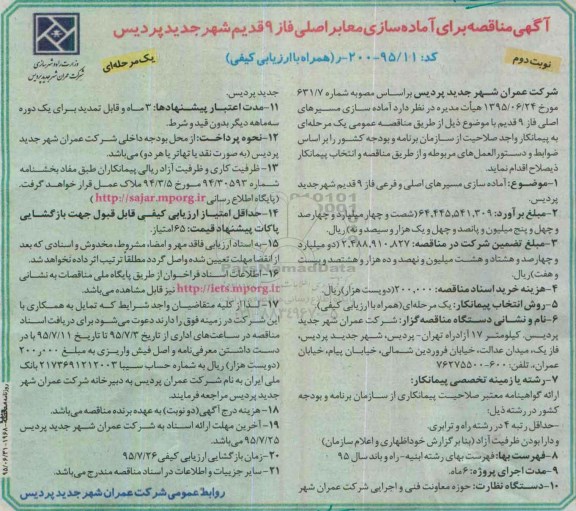 آگهی مناقصه برای آماده سازی معابر اصلی فاز ۹ قدیم شهر جدید پردیس
کد: ۹۵/۱۱-۲۰۰-ر (همراه با ارزیابی کیفی)
نوبت دوم
یک مرحله‌ای
وزارت راه و شهرسازی
شرکت عمران شهر جدید پردیس
شرکت عمران شهر جدید پردیس براساس مصوبه شماره ۶۳۱/۷
مورخ ۱۳۹۵/۰۶/۲۴ هیأت مدیره در نظر دارد آماده سازی مسیرهای
اصلی فاز ۹ قدیم با موضوع ذیل از طریق مناقصه عمومی یک مرحله‌ای
به پیمانکار واجد صلاحیت از سازمان برنامه و بودجه کشور را بر اساس
ضوابط و دستورالعمل‌های مربوطه و از طریق مناقصه و انتخاب پیمانکار
ذیصلاح اقدام نماید.
۱-موضوع: آماده سازی مسیرهای اصلی و فرعی فاز ۹ قدیم شهر جدید
پردیس
۲-مبلغ برآورد: ۶۴,۴۴۵,۵۴۱,۳۰۹ (شصت و چهار میلیارد و چهارصد
و چهل و پنج میلیون و پانصد و چهل و یک هزار و سیصد و نه) ریال.
۳-مبلغ تضمین شرکت در مناقصه: ۲,۴۸۸,۹۱۰,۸۲۷ (دو میلیارد
و چهارصد و هشتاد و هشت میلیون و نهصد و ده هزار و هشتصد و بیست
و هفت) ریال.
۴-هزینه خرید اسناد مناقصه: ۲۰۰,۰۰۰ (دویست هزار) ریال.
۵-روش انتخاب پیمانکار: یک مرحله‌ای (همراه با ارزیابی کیفی)
۶-نام و نشانی دستگاه مناقصه گزار: شرکت عمران شهر جدید
پردیس. کیلومتر ۱۷ آزادراه تهران- پردیس، شهر جدید پردیس،
فاز یک، میدان عدالت، خیابان فروردین شمالی، خیابان پیام، خیابان
عمران، تلفن: ۶۰۰-۷۶۲۷۵۵۰۰
۷-رشته یا زمینه تخصصی پیمانکار:
ارائه گواهینامه معتبر صلاحیت پیمانکاری از سازمان برنامه و بودجه
کشور در رشته ذیل:
-حداقل رتبه ۴ در رشته راه و ترابری.
و دارا بودن ظرفیت آزاد (بنابر گزارش خوداظهاری و اعلام سازمان)
۸-فهرست بها: فهرست بهای رشته ابنیه- راه و باند سال ۹۵
۹-مدت اجرای پروژه: ۶ماه.
۱۰-دستگاه نظارت: حوزه معاونت فنی و اجرایی شرکت عمران شهر
جدید پردیس.
۱۱-مدت اعتبار پیشنهادها: ۳ماه و قابل تمدید برای یک دوره
سه‌ماهه دیگر بدون قید و شرط.
۱۲-نحوه پرداخت: از محل بودجه داخلی شرکت عمران شهر جدید
پردیس (به صورت نقد یا تهاتر یا هر دو) می‌باشد.
۱۳-ظرفیت کاری و ظرفیت آزاد ریالی پیمانکاران طبق مفاد بخشنامه
شماره ۹۴/۳۰۵۹۳ مورخ ۹۴/۳/۵ ملاک عمل قرار خواهد گرفت.
(پایگاه اطلاع رسانی http://sajar.mporg.ir)
۱۴-حداقل امتیاز ارزیابی کیفی قابل قبول جهت بازگشایی
پاکات پیشنهاد قیمت: ۶۵ امتیاز.
۱۵-به اسناد ارزیابی فاقد مهر و امضا، مشروط، مخدوش و اسنادی که بعد
از انقضا مهلت تعیین شده واصل گردد مطلقا ترتیب اثر داده نخواهد شد.
۱۶-اطلاعات و اسناد فراخوان از طریق پایگاه ملی مناقصات به نشانی
http://iets.mporg.ir نیز قابل مشاهده می‌باشد.
۱۷-لذا از کلیه متقاضیان واجد شرایط که تمایل به همکاری با
این شرکت در زمینه فوق را دارند دعوت می‌شود برای دریافت اسناد
مناقصه در ساعت‌های اداری از تاریخ ۹۵/۷/۳ تا تاریخ ۹۵/۷/۱۱ با در
دست داشتن معرفی‌نامه و اصل فیش واریزی به مبلغ ۲۰۰,۰۰۰
(دویست هزار) ریال به شماره حساب سیبا ۲۱۷۳۶۹۱۲۱۲۰۰۳ بانک
ملی ایران به نام شرکت عمران پردیس به دبیرخانه شرکت عمران شهر
جدید پردیس مراجعه فرمایند.
۱۸-هزینه درج آگهی (دو نوبت) به عهده برنده مناقصه می‌باشد.
۱۹-آخرین مهلت ارائه اسناد به شرکت عمران شهر جدید پردیس
۹۵/۷/۲۵ می‌باشد.
۲۰-زمان بازگشایی ارزیابی کیفی ۹۵/۷/۲۶
۲۱-سایر جزییات و اطلاعات در اسناد مناقصه مندرج می‌باشد.
روابط عمومی شرکت عمران شهر جدید پردیس